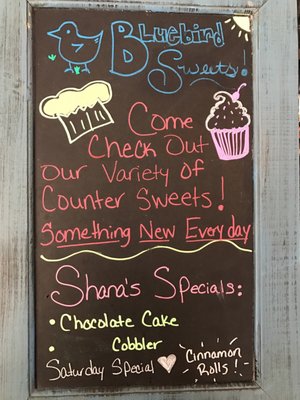 Bluebird
Sweets!
Come
Check Out
Our Variety of
Counter Sweets!
Something New Everyday
Shana's Specials:
• Chocolate Cake
• Cobbler
Saturday Special ♥ Cinnamon
Rolls!